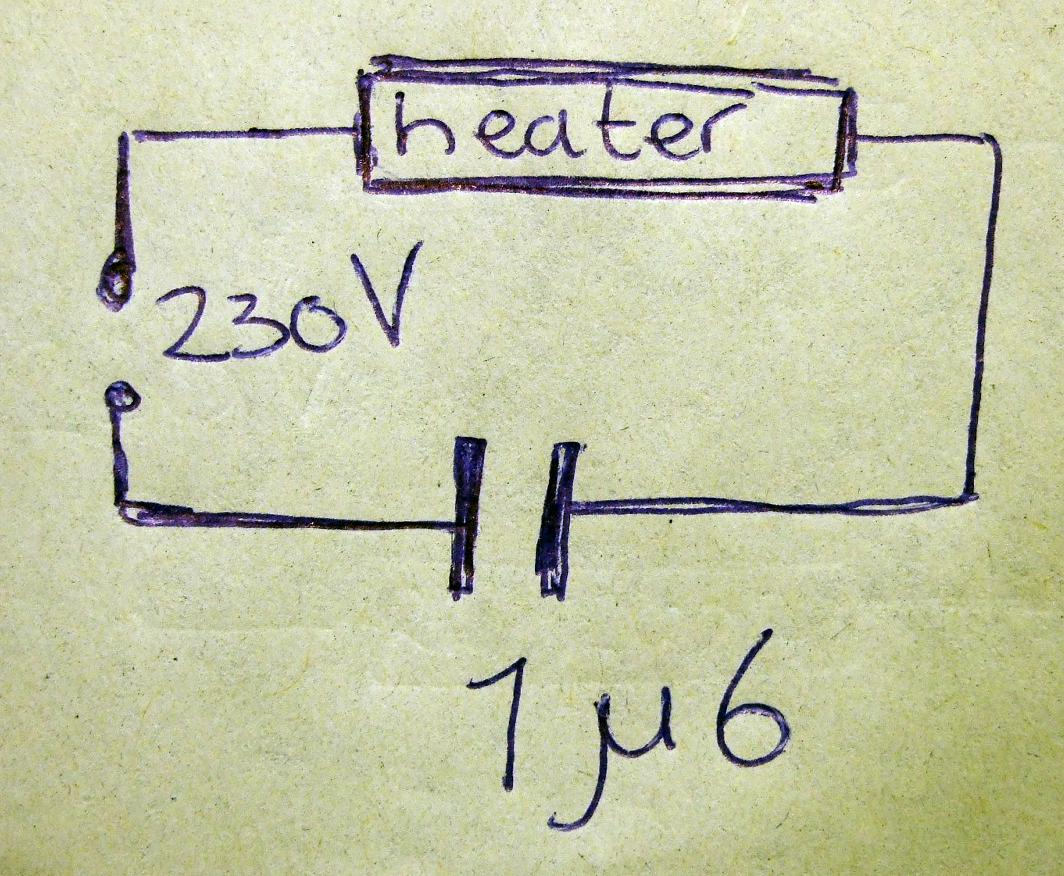 heater
230V
1µ6